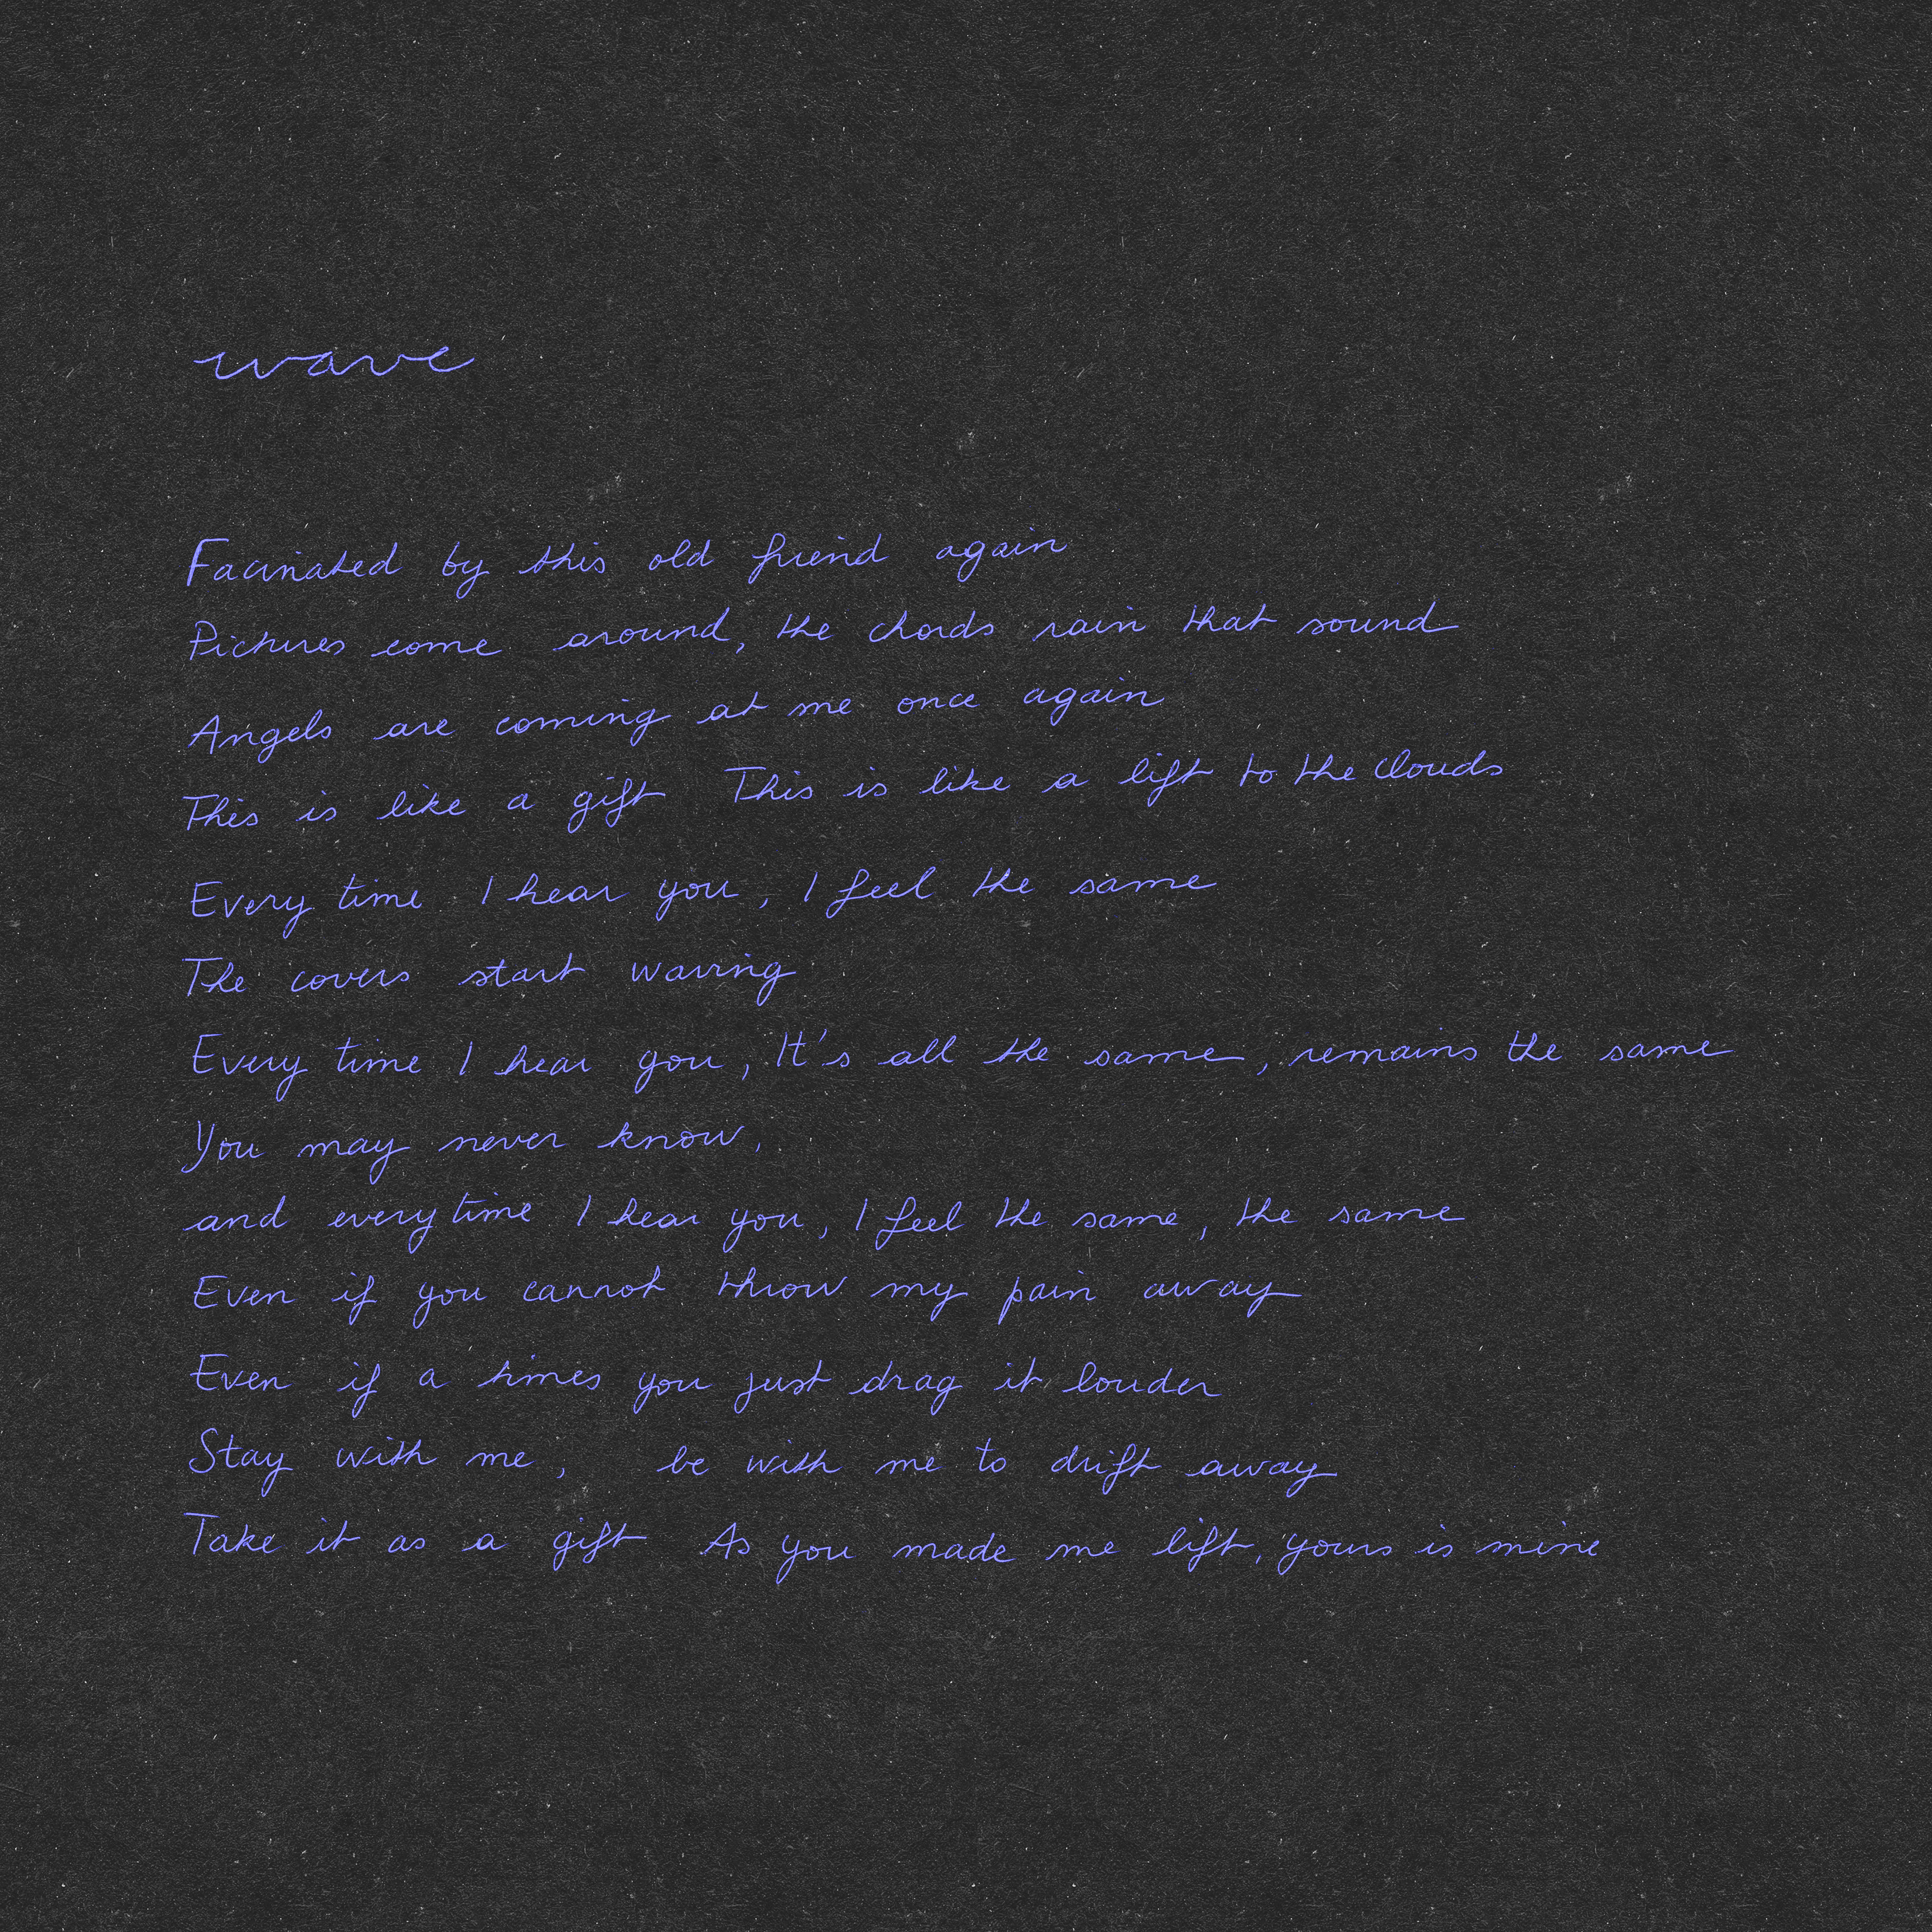 wave
Facinated by this old friend again
Pictures come around, the chords rain that sound
Angels are coming at me once again
This is like a gift This is like a lift to the clouds
Every time I hear you, I feel the same
The covers start waving
Every time I hear you, It's all the same, remains the same
You may never know,
and every time I hear you, I feel the same, the same
Even if you cannot throw my pain away
Even if a times you just drag it louder
Stay with me, be with me to drift away
Take it as a gift As you made me lift, yours is mine